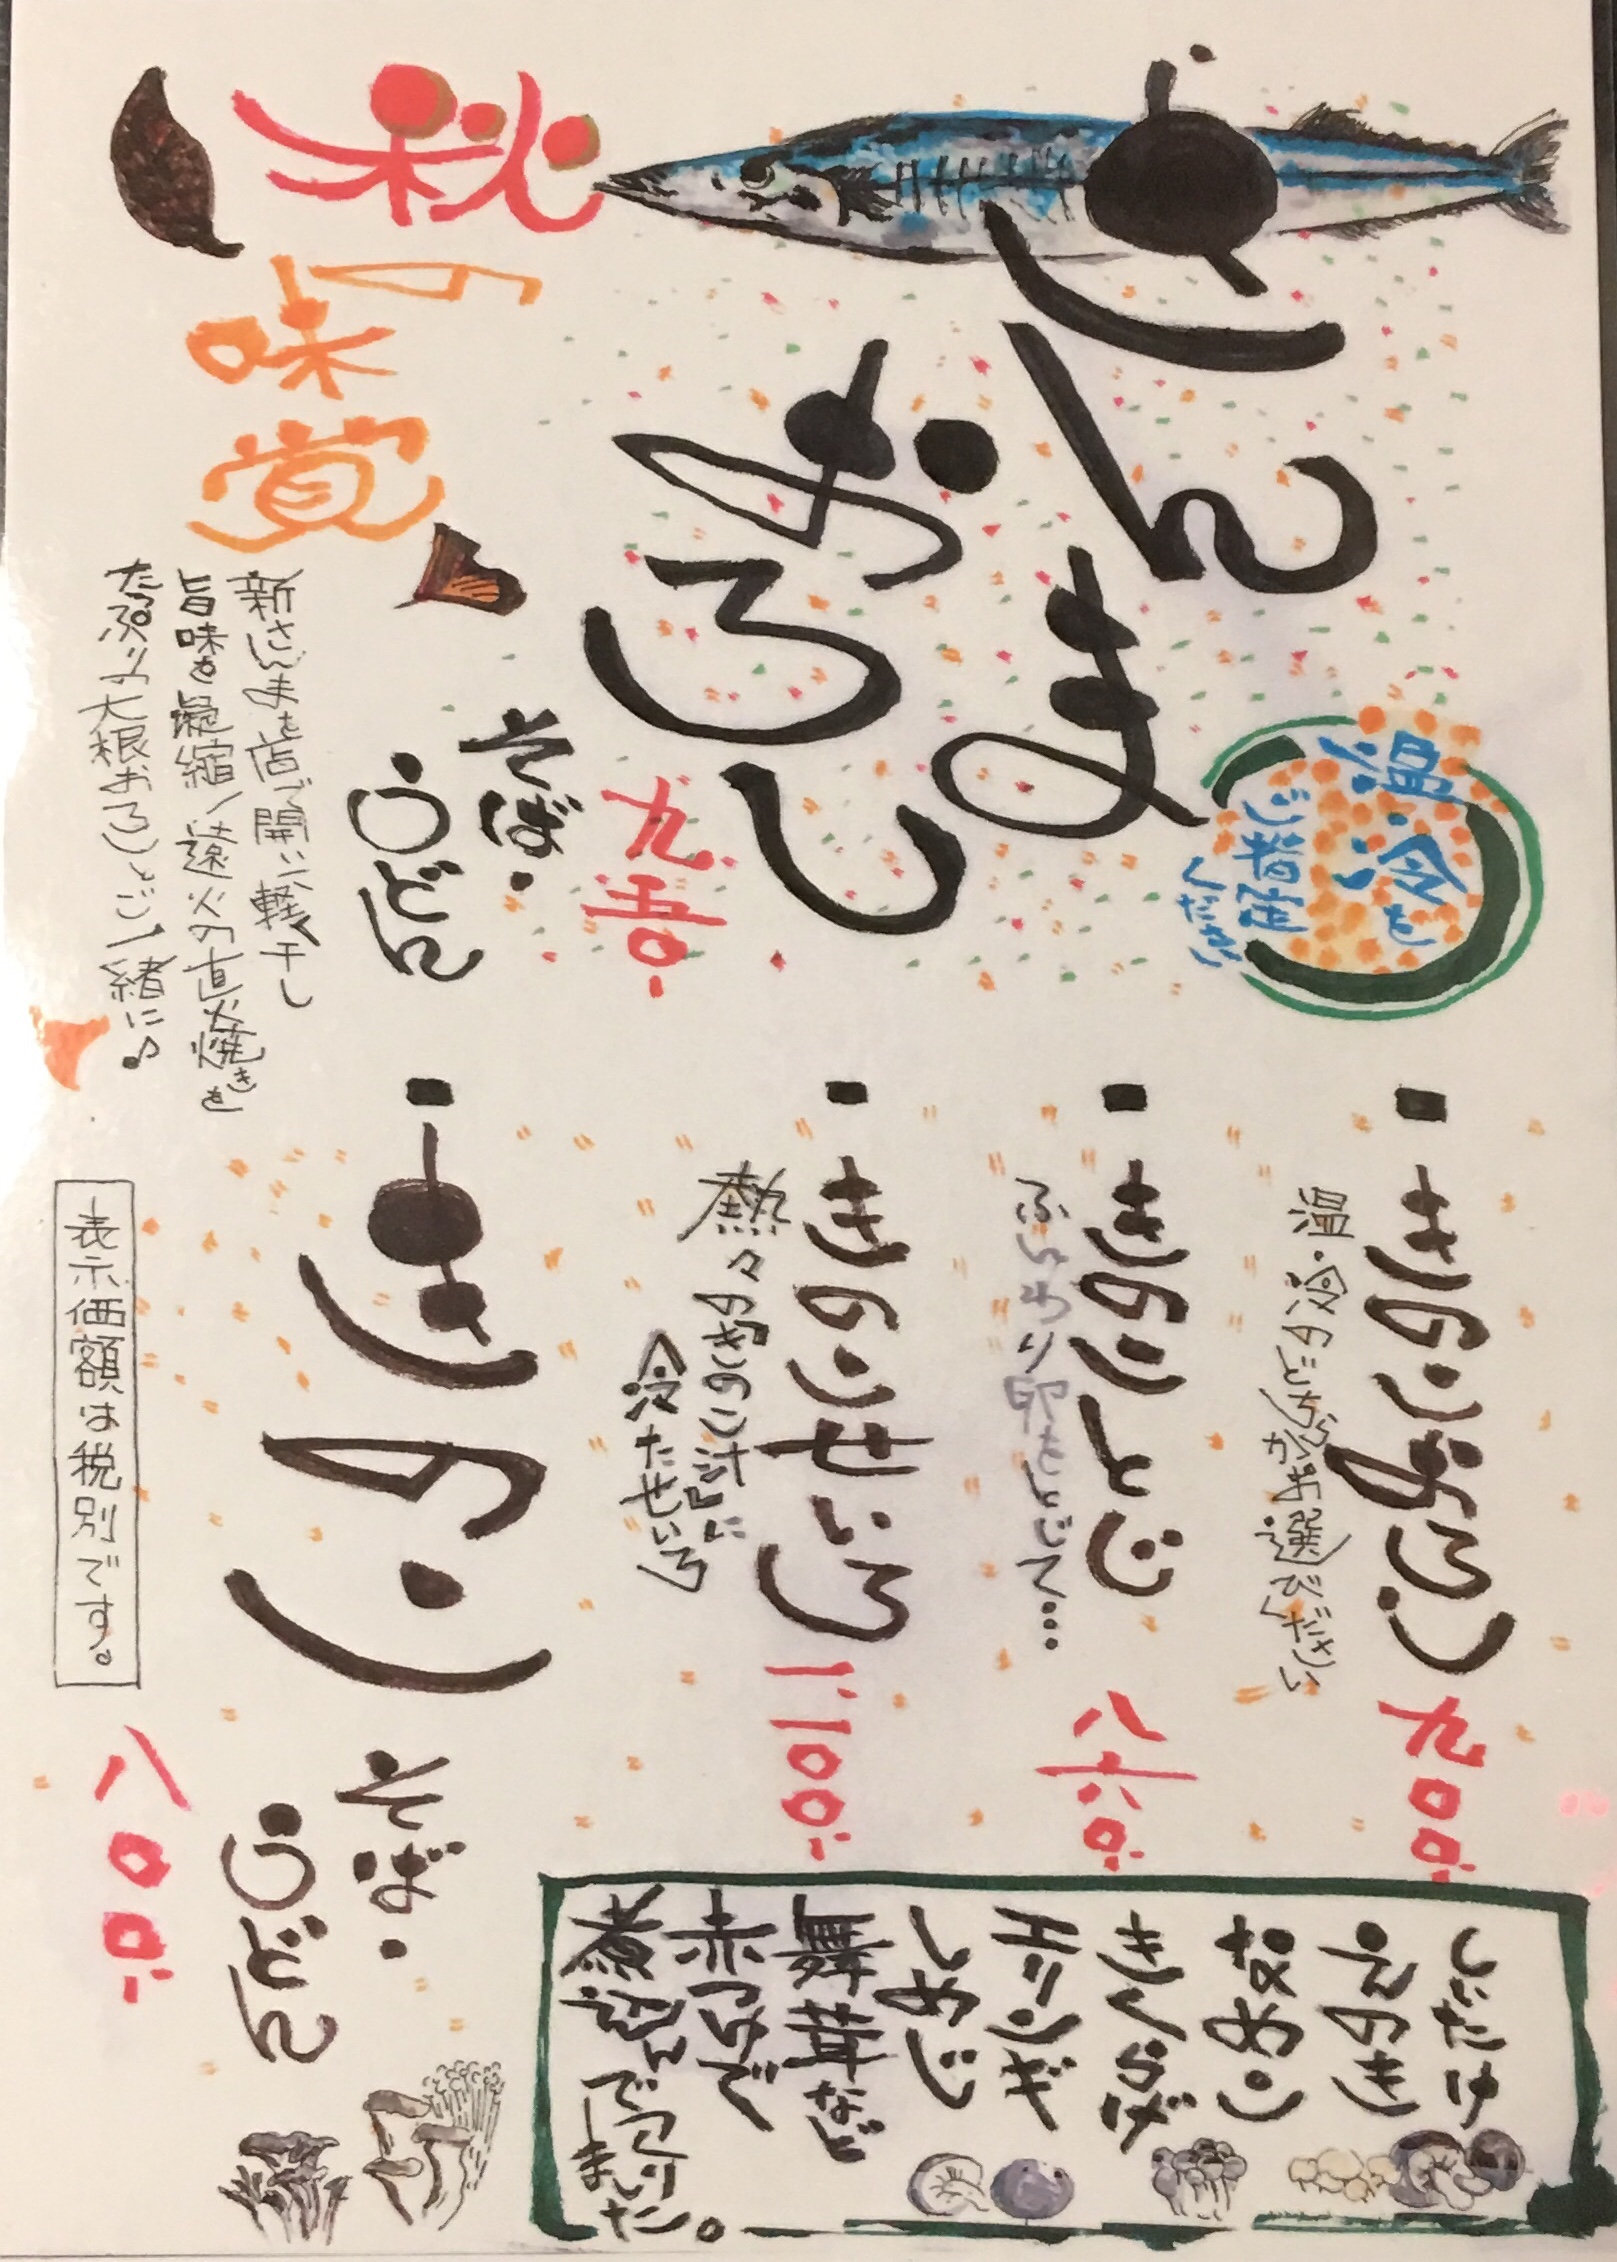 さんま
おろし
温・冷を
ご指定
ください
九五〇.-
そば・
うどん
秋の味覚
新さんまを店で開いて軽く干し
旨味を凝縮!遠火の直火焼きを
たっぷりの大根おろしとご一緒に♪
・きのこおろし
九〇〇.-
温・冷のどちらかお選びください
・きのことじ
八六〇.-
ふんわり卵をとじて…
・きのこせいろ
一、一〇〇.-
熱々の『きのこ汁』に
冷たせいろ
・きのこ
そば・
うどん
八〇〇.-
しいたけ
えのき
なめこ
きくらげ
エリンギ
しめじ
舞茸など
赤つけで
煮込んでつくり
ました。
表示価額は税別です。